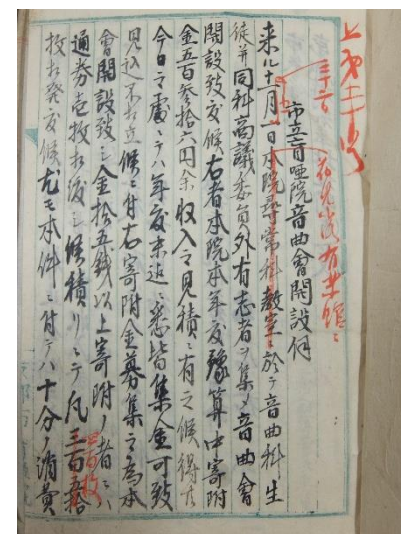 上第十一号
三十日 有楽館ニ
市立盲唖院音曲會開設伺
来ル十一月 日本院尋常科教室ニ於テ音曲科生
徒并同科商議委員外有志者ヲ集メ音曲會
開設致度候右者本院本年度豫算中寄附
金五百参拾六円余収入ノ見積ニ有之候得共
今日之處ニテハ年度末迄ニ悉皆集金可致
見込不相立候ニ付右寄附金募集之為本
會開設致シ金拾五銭以上寄附ノ者ニハ
通券壱枚相渡シ候積リニテ凡三百五拾
四百枚
枚相発度候尤モ本件ニ付テハ十分ノ消費